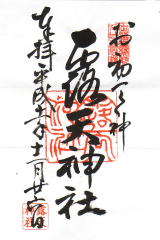 お初天神
露天神社
奉拝 平成
年十一月廿六日